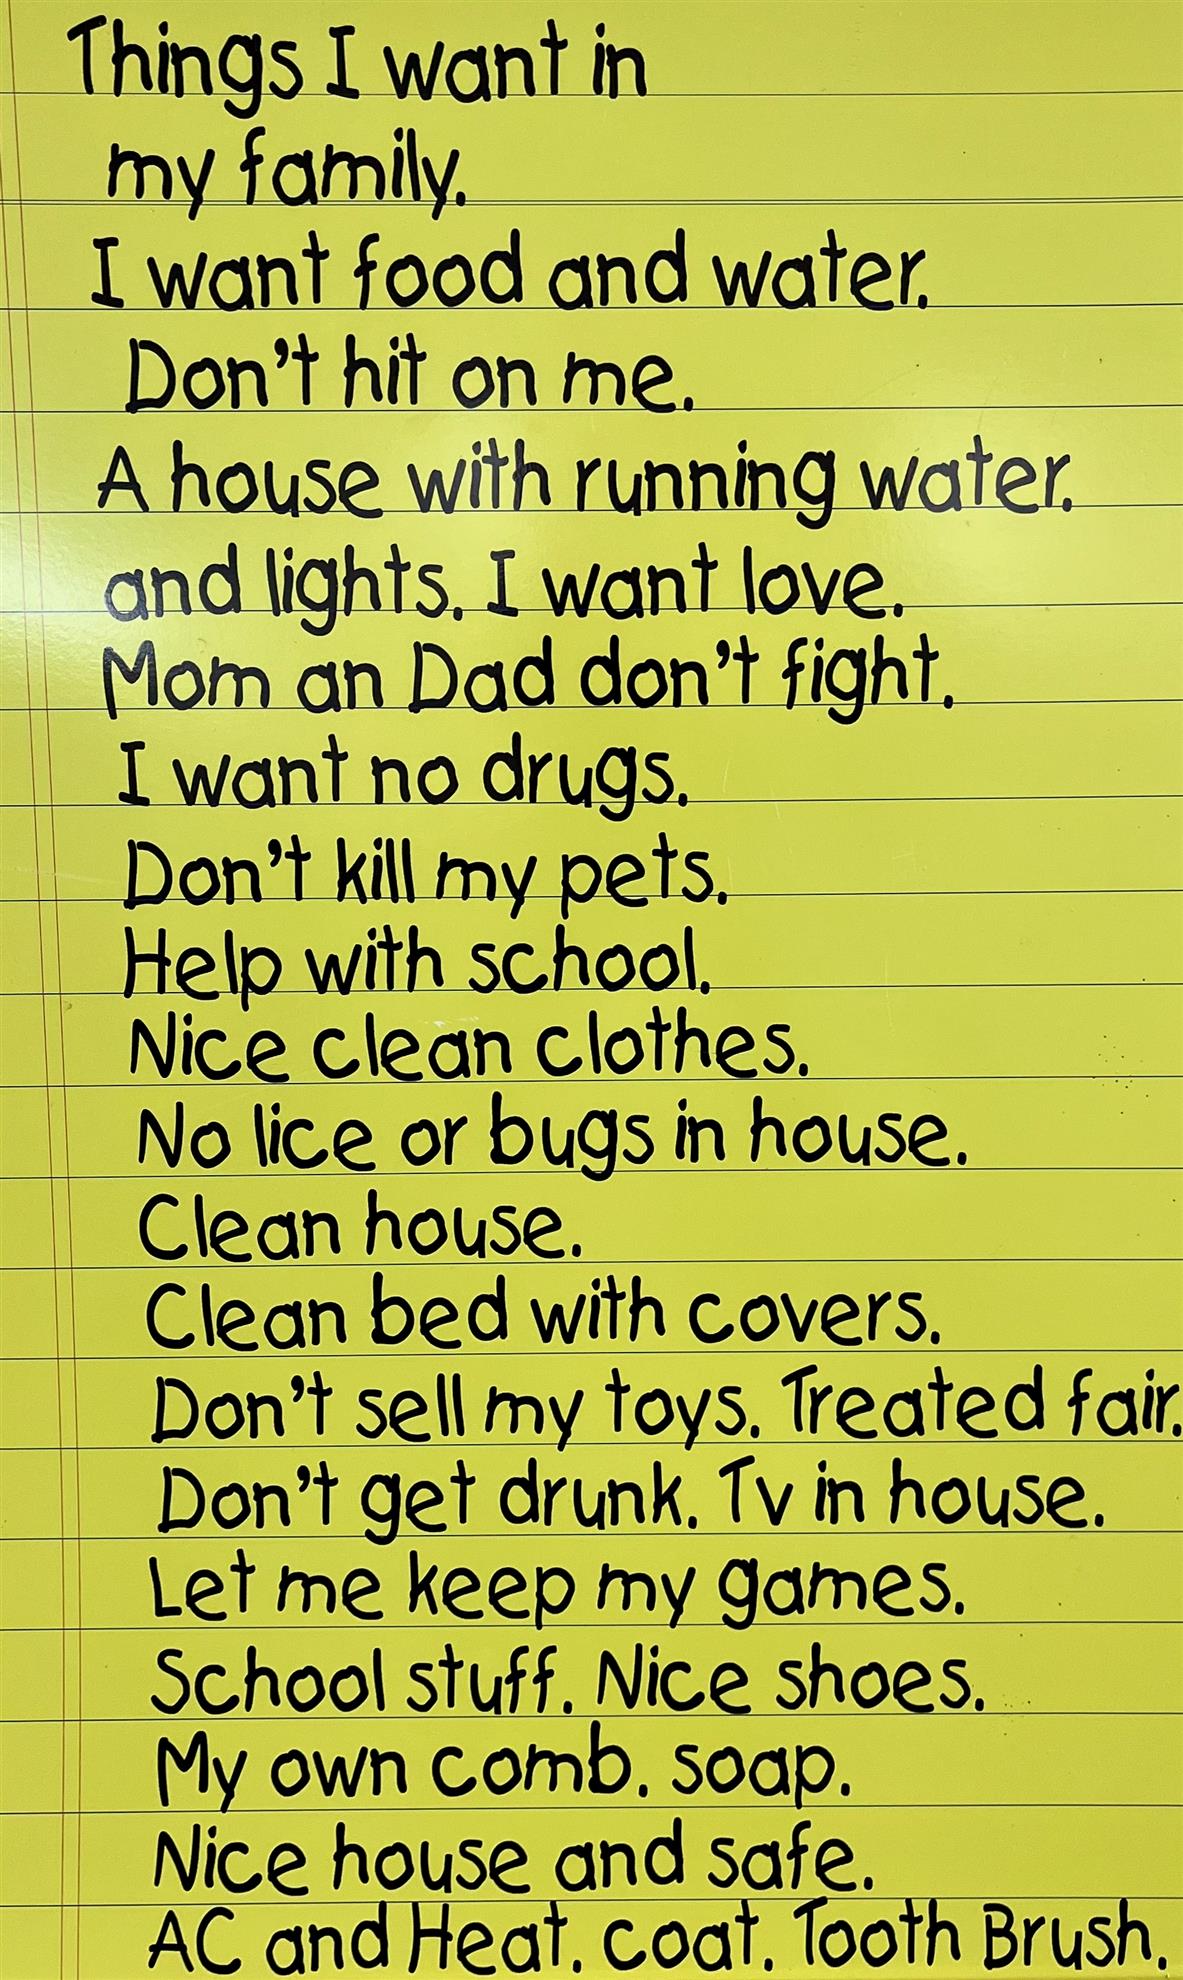 Things I want in
my family.
I want food and water.
Don't hit on me.
A house with running water.
and lights. I want love.
Mom an Dad don't fight.
I want no drugs.
Don't kill my pets.
Help with school.
Nice clean clothes.
No lice or bugs in house.
Clean house.
Clean bed with covers.
Don't sell my toys. Treated fair.
Don't get drunk. Tv in house.
Let me keep my games.
School stuff. Nice shoes.
My own comb. soap.
Nice house and safe.
AC and Heat. coat. Tooth Brush.